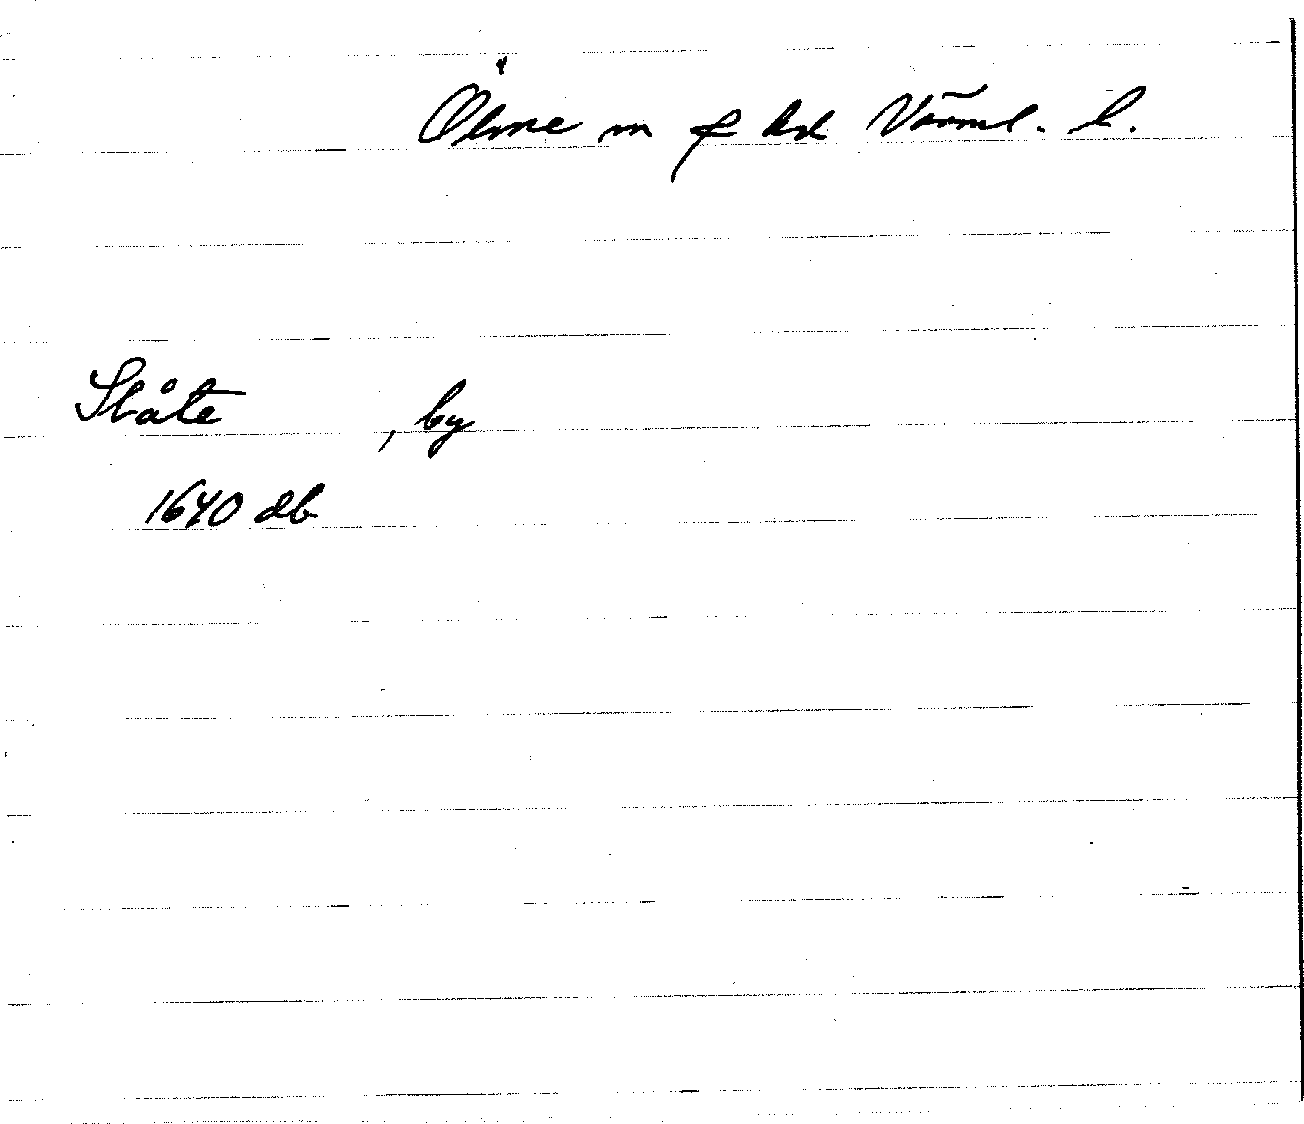 Ölme m fl hd Värml. l.
Slåte, by
1640 db